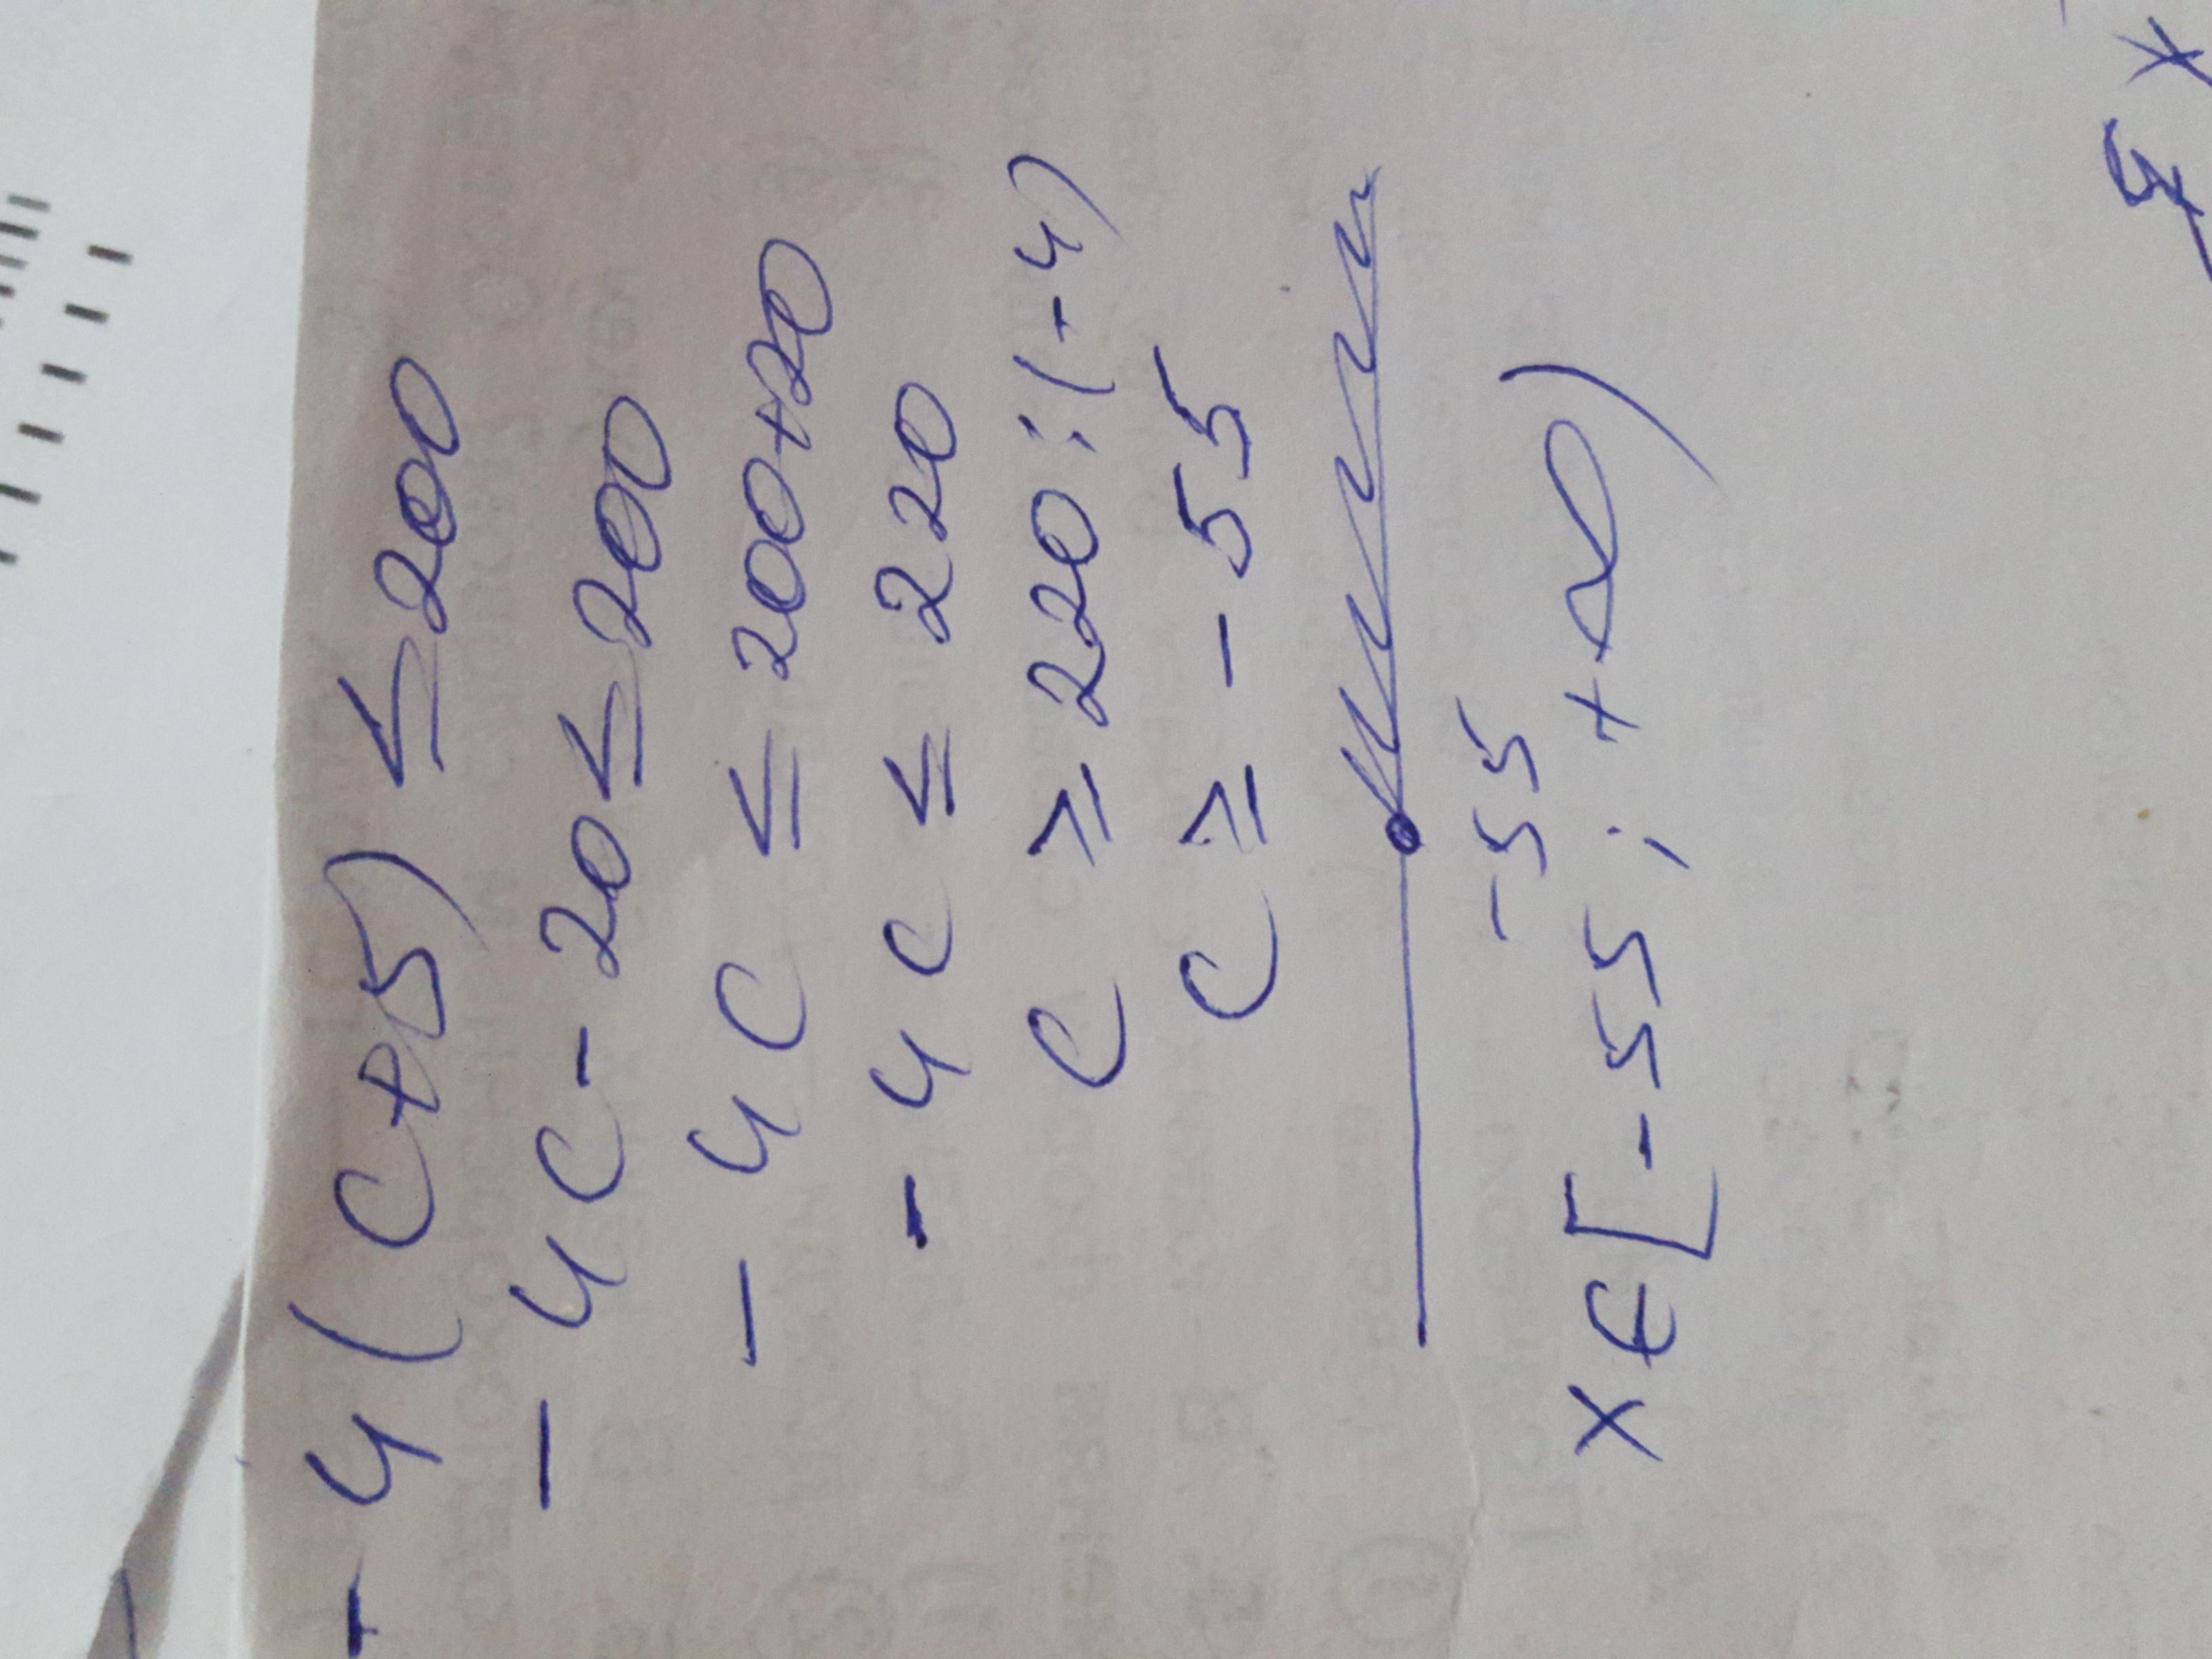 -4(c+5) ≤ 200
-4c-20 ≤ 200
-4c ≤ 200+20
-4c ≤ 220
c ≥ 220:(-4)
c ≥ -55
-55
x∈[-55; +∞)